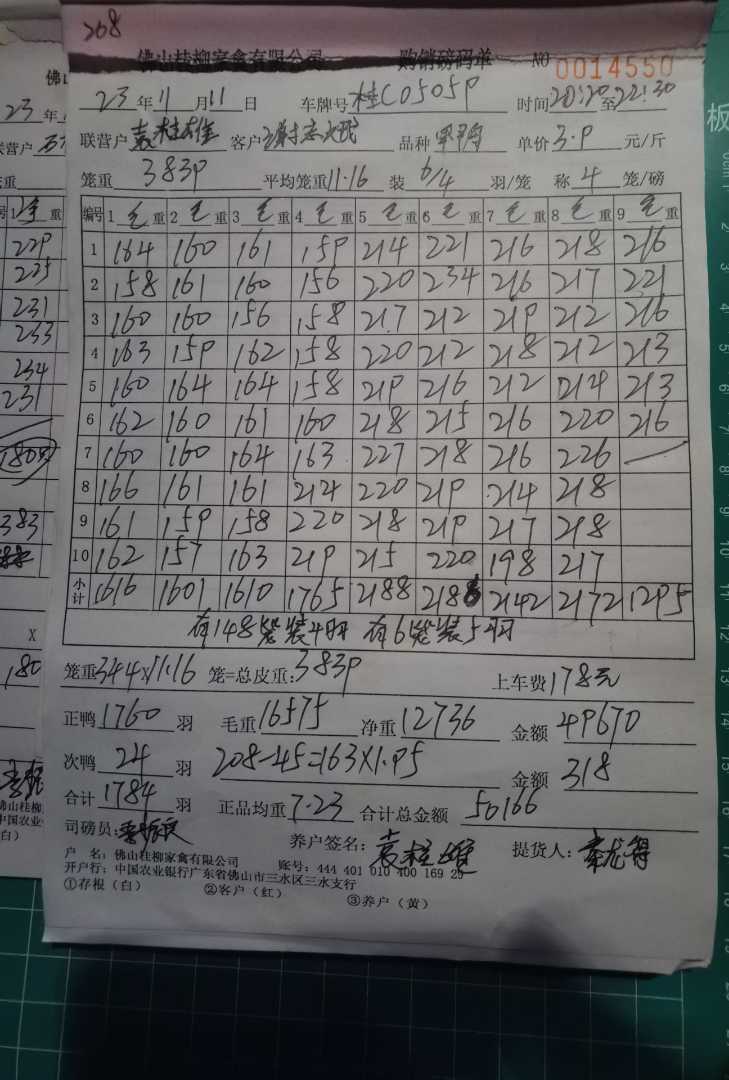 268
佛山桂柳家禽有限公司 购销磅码单 NO 0014550
23年11月11日 车牌号桂C0505P 时间20:20至22:30
联营户袁桂雄 客户 品种 单价3.9元/斤
笼重3839 平均笼重11.16 装6/4羽/笼 称4笼/磅
编号 1毛重 2毛重 3毛重 4毛重 5毛重 6毛重 7毛重 8毛重 9毛重
1 164 160 161 159 214 221 216 218 216
2 158 161 160 156 220 234 216 217 221
3 160 160 156 158 217 212 219 212 216
4 163 159 162 158 220 212 218 212 213
5 160 164 164 158 219 216 212 214 213
6 162 160 161 160 218 215 216 220 216
7 160 160 164 163 227 218 216 226 —
8 166 161 161 214 220 219 214 218
9 161 159 158 220 218 219 217 218
10 162 157 163 219 215 220 198 217
小计 1616 1601 1610 1765 2188 2186 2142 2172 1295
有148笼装4羽 有6笼装5羽
笼重344×11.16笼=总皮重:3839 上车费178元
正鸭1760羽 毛重16575 净重12736 金额49670
次鸭24羽 208-45=163×1.95 金额318
合计1784羽 正品均重7.23 合计总金额50166
司磅员: 养户签名:袁桂雄 提货人:
户 名:佛山桂柳家禽有限公司 账号:444 401 010 400 169 25
开户行:中国农业银行广东省佛山市三水区三水支行
①存根(白) ②客户(红) ③养户(黄)